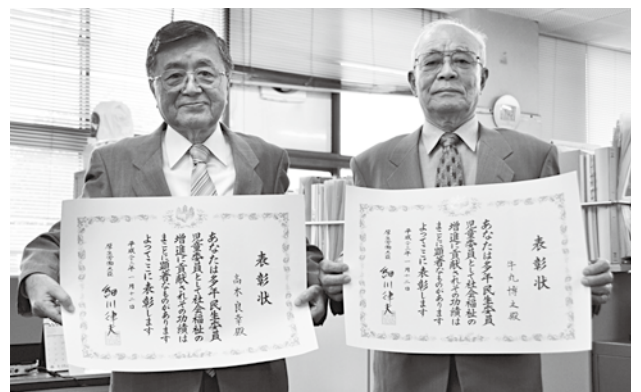 表彰状
高木良幸殿
あなたは多年民生委員
児童委員として社会福祉の
増進に貢献されその功績は
まことに顕著なものがあります
よってここに表彰します
平成二十三年一月十八日
厚生労働大臣 細川律夫
表彰状
牛丸博之殿
あなたは多年民生委員
児童委員として社会福祉の
増進に貢献されその功績は
まことに顕著なものがあります
よってここに表彰します
平成二十三年一月十八日
厚生労働大臣 細川律夫